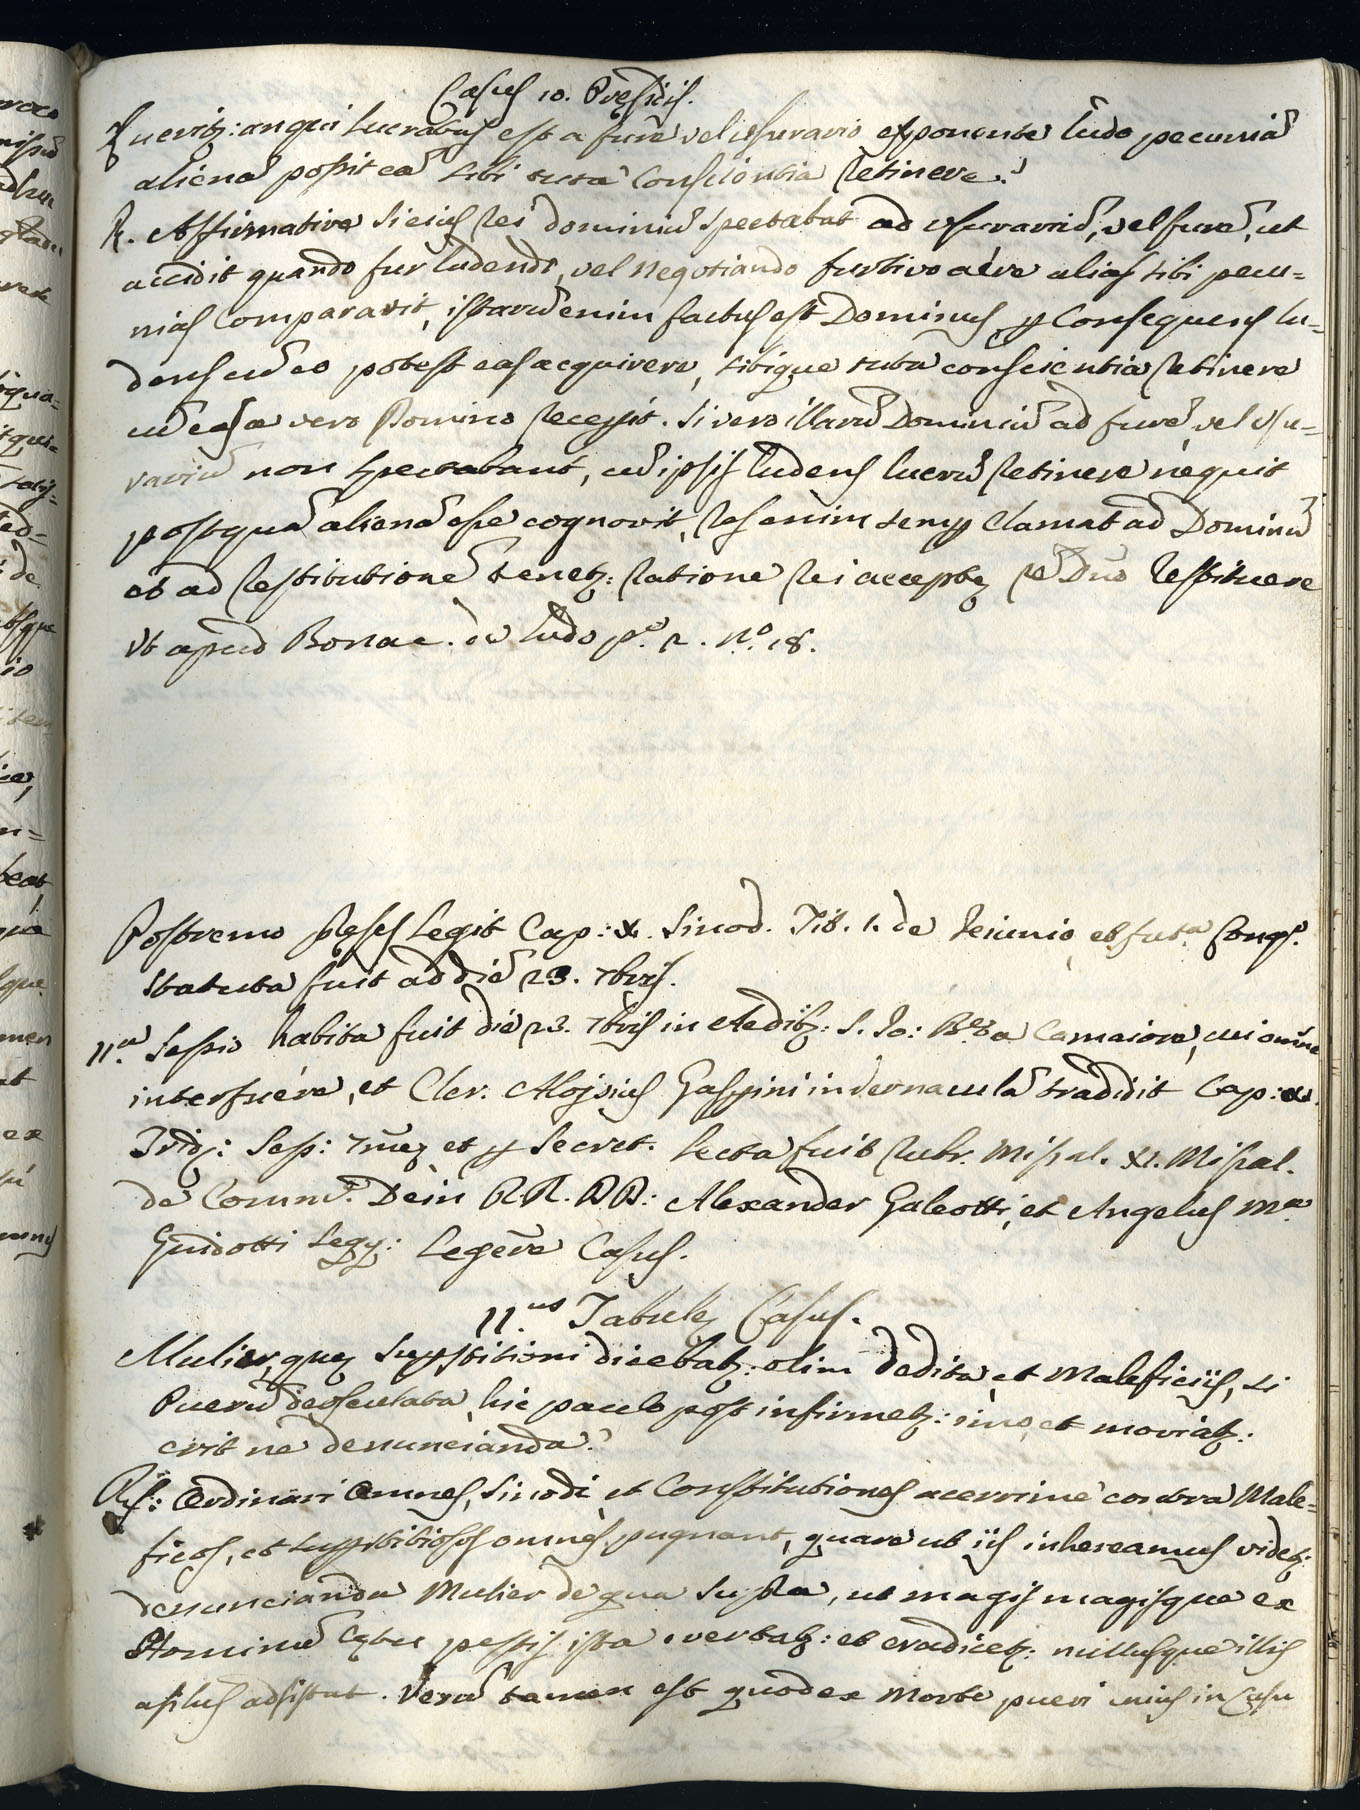 Casus 10. Presidis.
Queritz: an qui lucratus est a fure vel usurario exponente ludo pecuniā
alienā possit eā sibi tuta Conscientia retinere?
R. Affirmative si eius rei dominiū spectabat ad usurariū, vel furē, ut
accidit quando fur ludendo, vel negotiando furtivo aere alias sibi pecu=
nias Comparavit, istarū enim factus est Dominus, et Consequens lu=
dens cū eo potest eas acquirere, sibique tuta conscientia retinere
vero Domino recessit. Si vero illarū Dominiū ad furē, vel usu=
rariū non spectabant, cū ipsis ludens lucrū retinere nequit
postquā alienā esse cognovit, res enim semp clamat ad Dominū
et ad restitutionē tenetz: ratione rei acceptę Dnō restituere
Ut apud Bonac. de ludo pº. 2. Nº. 18.
Postremo Preses Legit Cap: X. Sinod. Tit. 1. de Jeiunio, et futª Congr.
statuta fuit ad diē 23. 7bris.
11.ª Sessio habita fuit die 23. 7bris in Aedibz: S. Jo: Bᵗᵃ a Camaiore, cui omnē
interfuere, et Cler. Aloysius Gasspini in vernaculā tradidit Cap:
Trid: Sess: et p Secret. Lecta fuit Rubr. Missal. XI. Missal.
de Comm. Dein RR. DD: Alexander Galeotti, et Angelus Mª
Guidotti Legere Casus.
11.us Tabulę Casus.
Mulier, quę superstitioni dicebatz: olim dedita, et Maleficiis, si
Puerū deosculata, hic paulo post infirmetz: imo et moriatz:
erit ne denuncianda?
Rs: Ordinarii Omnes, Sinodi, et Constitutiones acerrime contra Male=
ficos, et suprstitiosos omnes pugnant, quare ut iis inhereamus videtz:
denuncianda Mulier de qua supra, ut magis magisque ex
Hominū pestis ista evertatz: et eradicetz: nullusque illis
asilus adsistat. Verū tamen est quod ex Morte pueri cuius in Casu